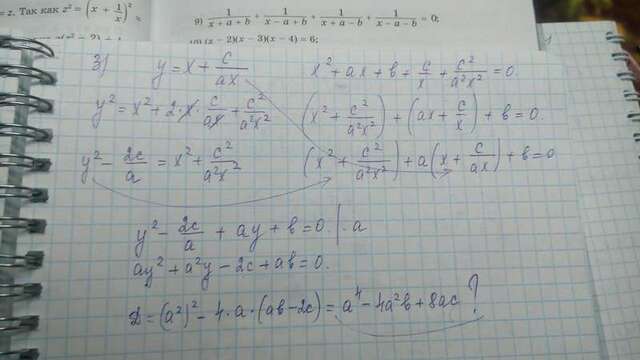 = z. Так как z² = (x + 1/x)² =
9) 1/(x+a+b) + 1/(x−a+b) + 1/(x+a−b) + 1/(x−a−b) = 0;
(x−2)(x−3)(x−4) = 6;
3) y = x + c/(ax)
x² + ax + b + c/x + c²/(a²x²) = 0.
y² = x² + 2·x·c/(ax) + c²/(a²x²)
(x² + c²/(a²x²)) + (ax + c/x) + b = 0
y² − 2c/a = x² + c²/(a²x²)
(x² + c²/(a²x²)) + a(x + c/(ax)) + b = 0
y² − 2c/a + ay + b = 0. | · a
ay² + a²y − 2c + ab = 0.
D = (a²)² − 4·a·(ab−2c) = a⁴ − 4a²b + 8ac ?